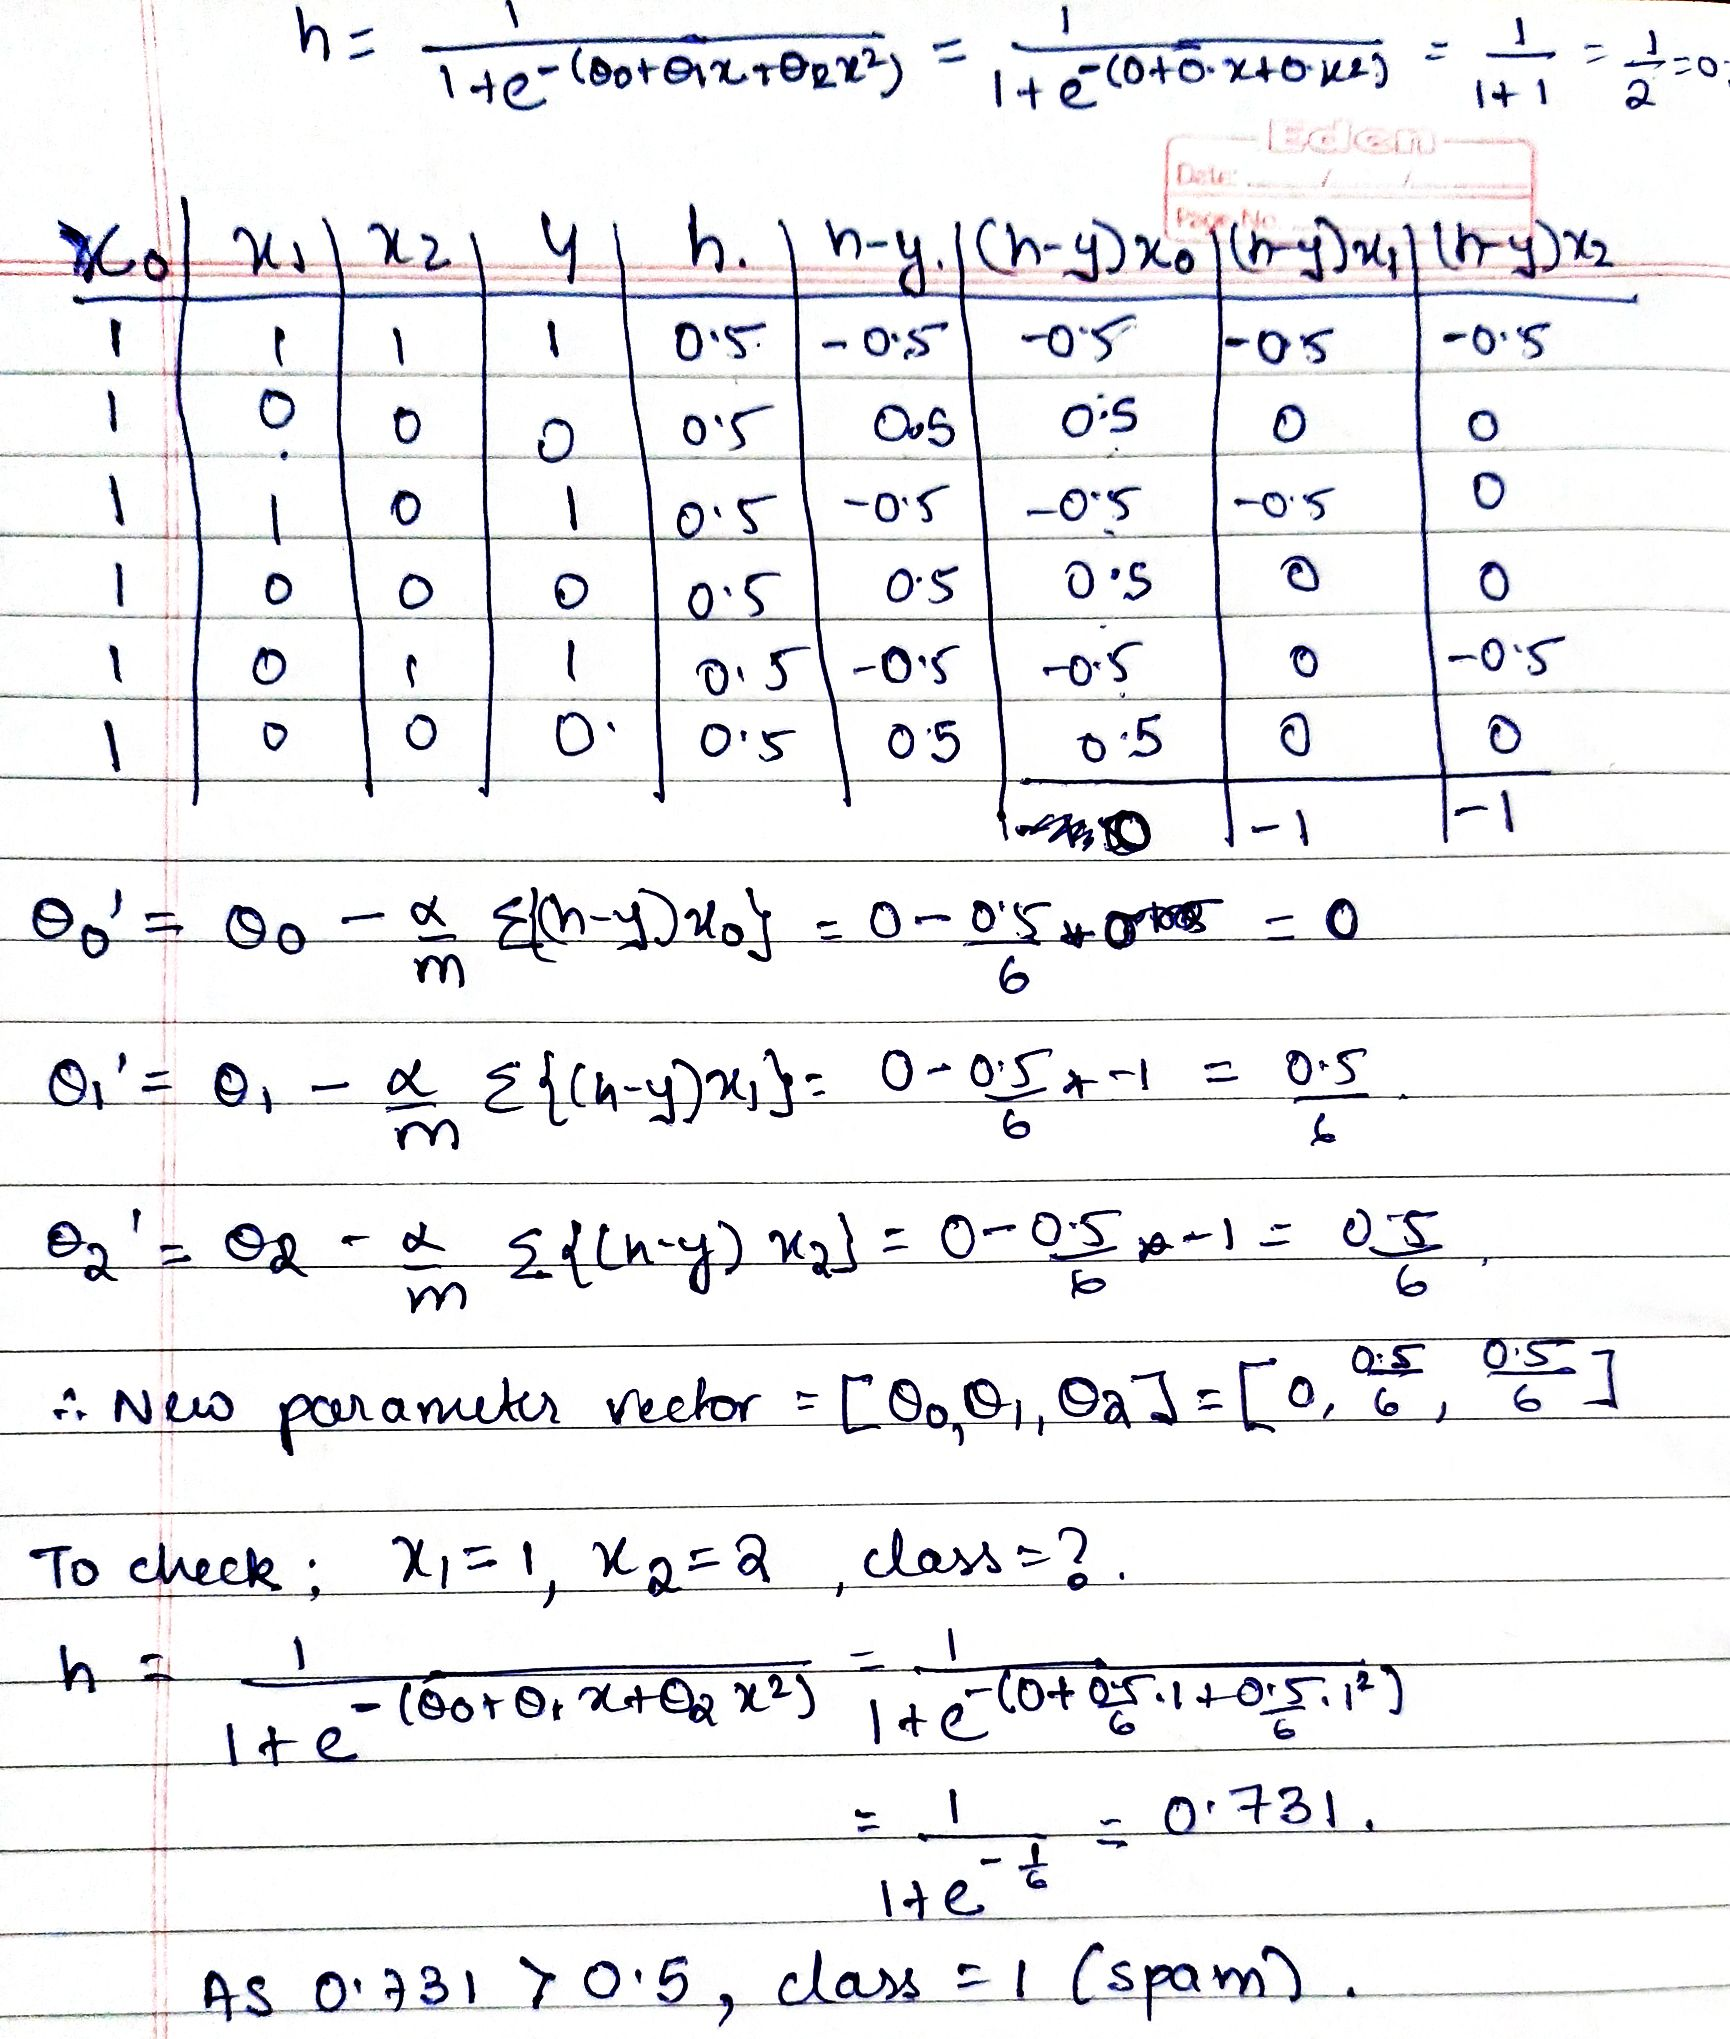 h = 1/(1+e^-(θ0+θ1x+θ2x²)) = 1/(1+e^-(0+0.x+0.x²)) = 1/(1+1) = 1/2 = 0.
Eden
Date: ......./......./.......
Page No.
x0 | x1 | x2 | y | h. | h-y. | (h-y)x0 | (h-y)x1 | (h-y)x2
1 | 1 | 1 | 1 | 0.5 | -0.5 | -0.5 | -0.5 | -0.5
1 | 0 | 0 | 0 | 0.5 | 0.5 | 0.5 | 0 | 0
1 | 1 | 0 | 1 | 0.5 | -0.5 | -0.5 | -0.5 | 0
1 | 0 | 0 | 0 | 0.5 | 0.5 | 0.5 | 0 | 0
1 | 0 | 1 | 1 | 0.5 | -0.5 | -0.5 | 0 | -0.5
1 | 0 | 0 | 0. | 0.5 | 0.5 | 0.5 | 0 | 0
0 | -1 | -1
θ0' = θ0 - α/m Σ{(h-y)x0} = 0 - 0.5/6 * 0 = 0
θ1' = θ1 - α/m Σ{(h-y)x1} = 0 - 0.5/6 * -1 = 0.5/6.
θ2' = θ2 - α/m Σ{(h-y) x2} = 0 - 0.5/6 * -1 = 0.5/6.
∴ New parameter vector = [θ0, θ1, θ2] = [0, 0.5/6, 0.5/6]
To check; x1=1, x2=2, class=?.
h = 1/(1+e^-(θ0+θ1x+θ2x²)) = 1/(1+e^-(0+0.5/6.1+0.5/6.1²))
= 1/(1+e^-1/6) = 0.731.
As 0.731 > 0.5, class = 1 (spam).